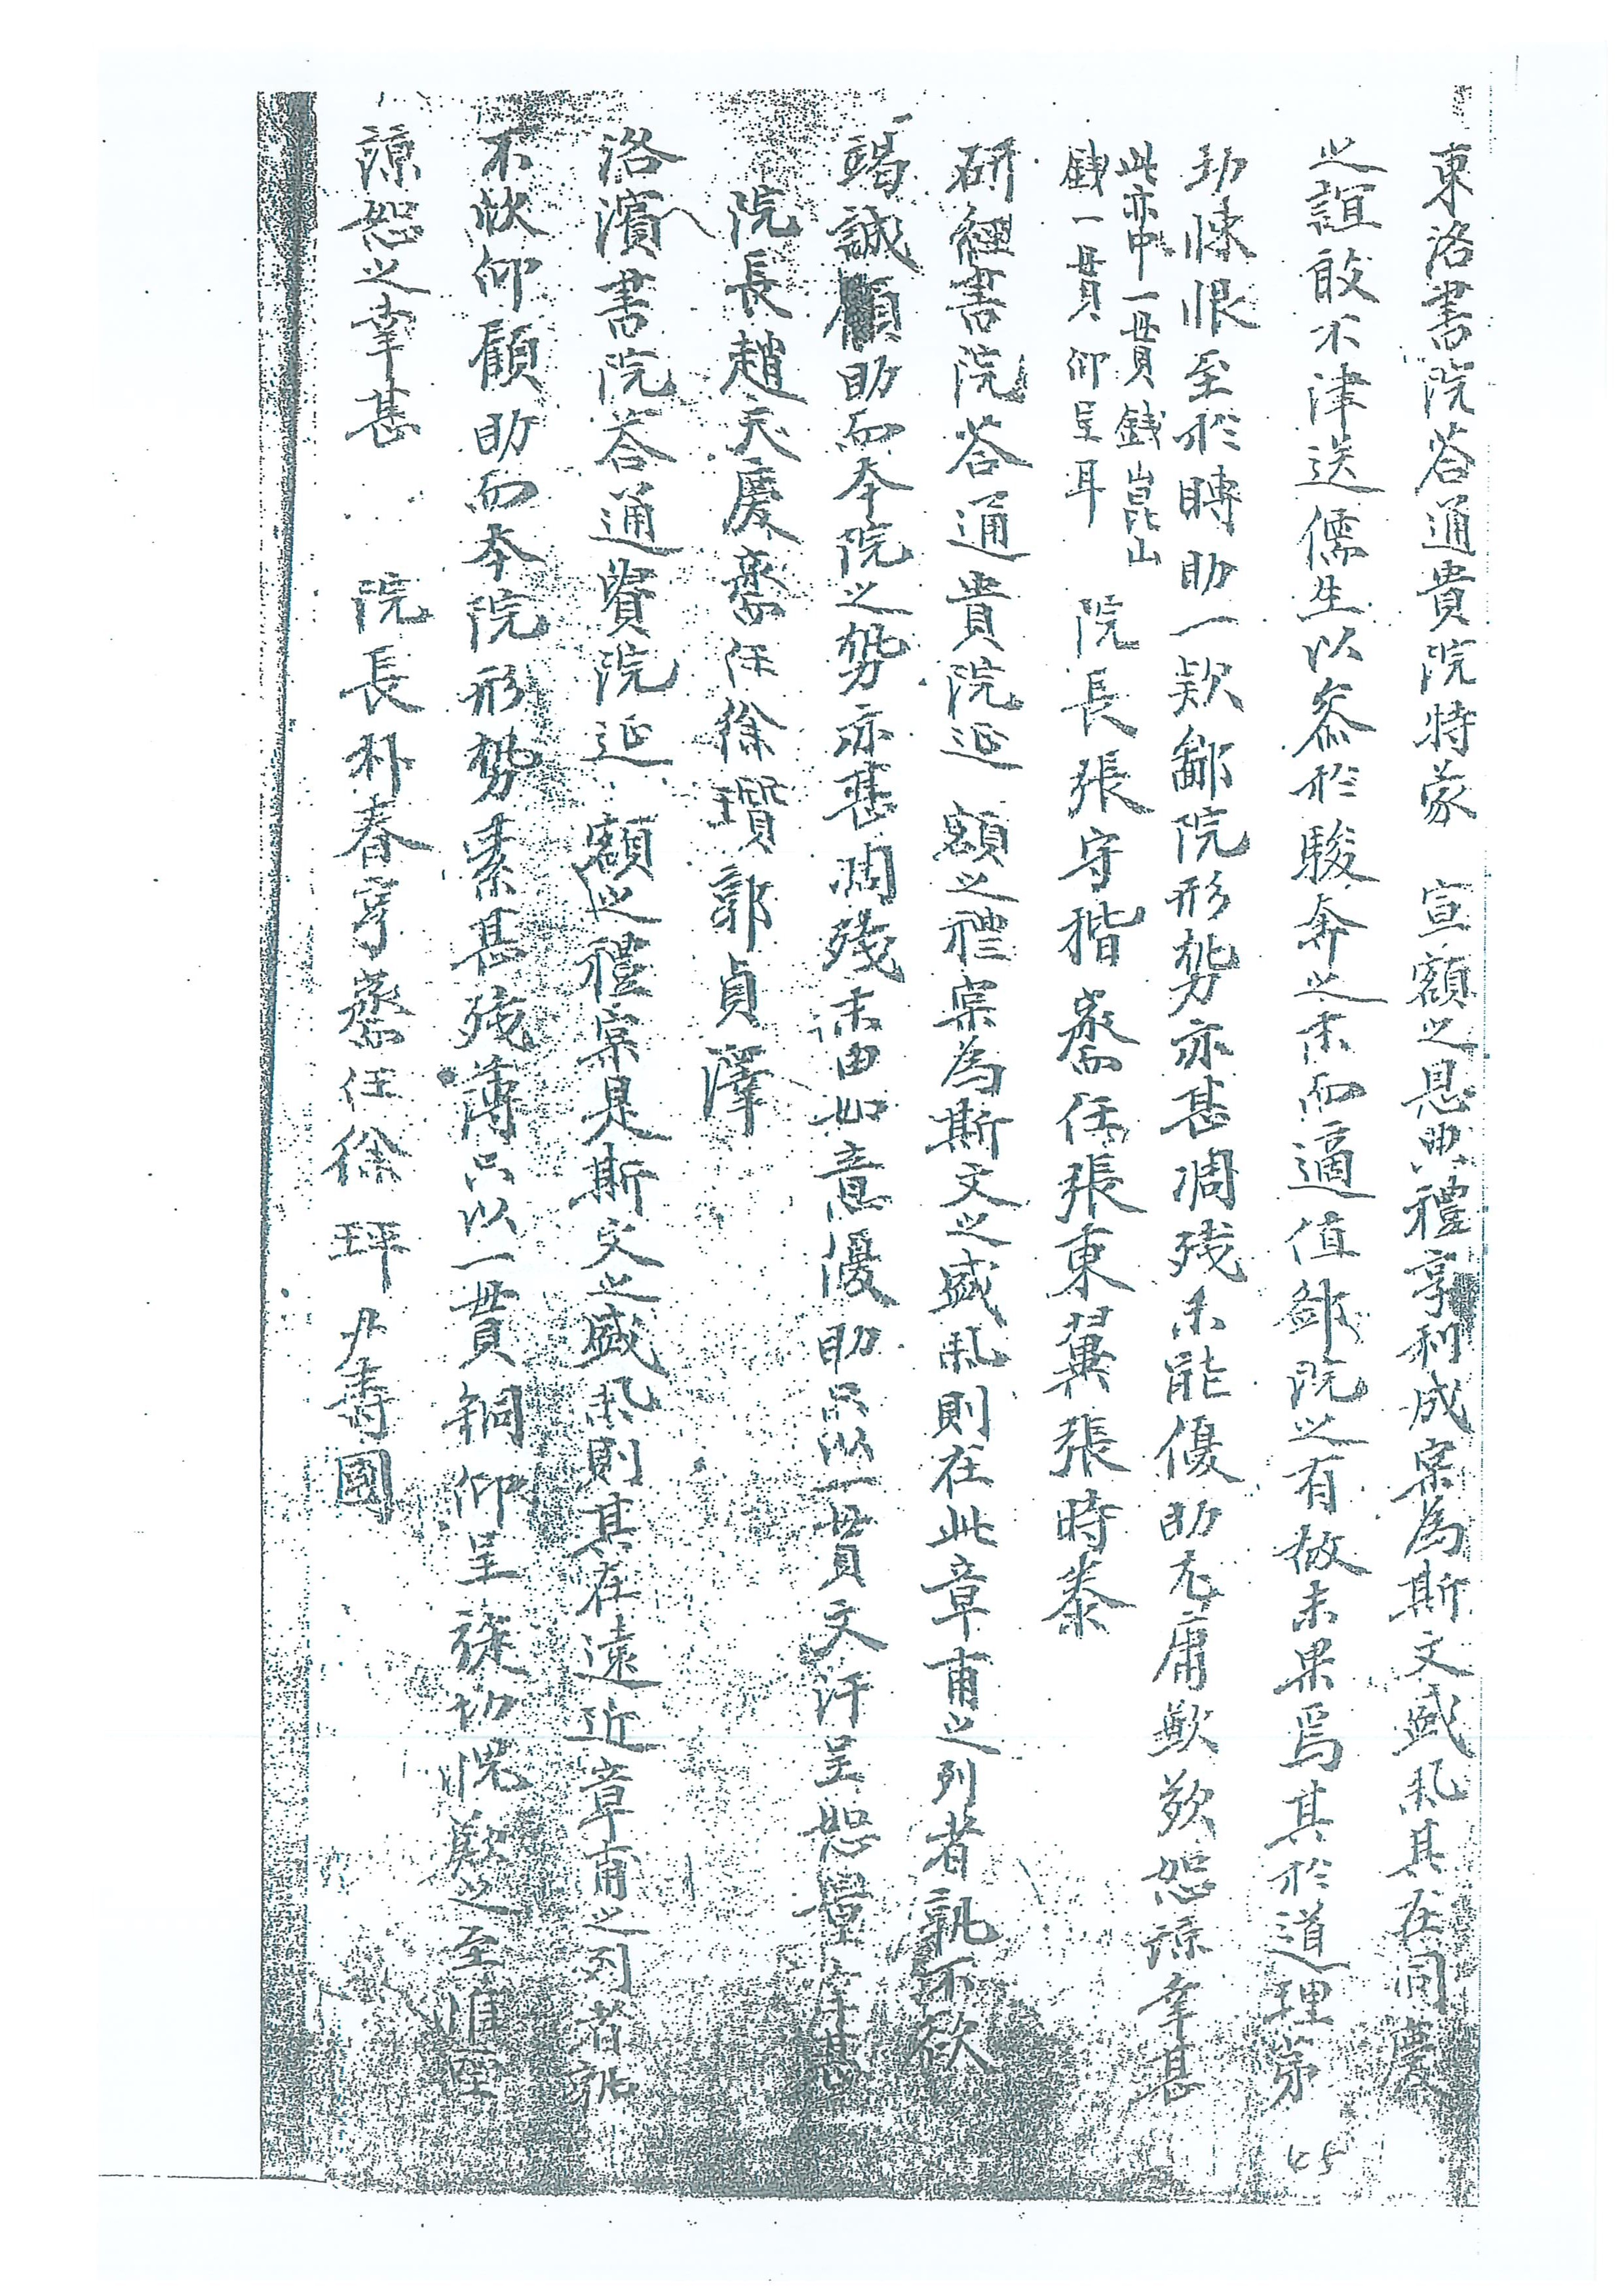 東洛書院答通貴院特蒙 宣額之恩典禮享利成寔為斯文盛風其在同慶
之誼敢不津送儒生以忝於駿奔之末而適值鄙院之有故未果焉其於道理第
切悚恨至於賻助一款鄙院形勢亦甚凋殘未能優助尤庸歎歎恕諒幸甚
此亦中一貫錢崑山
錢一貫仰呈耳 院長張守稽齋任張東翼張時泰
研經書院答通貴院延 額之禮寔為斯文之盛風則在此章甫之列者孰不欲
竭誠顧助而本院之勢亦甚凋殘未由如意優助只以一貫文汗呈恕 幸甚
院長趙天慶齋任徐瓚郭貞澤
洛濱書院答通貴院延 額之禮寔是斯文之盛風則其在遠近章甫之列者孰
不欲仰顧助而本院形勢素甚殘薄只以一貫銅仰呈徒切愧歎之至惟望
諒恕之幸甚 院長朴春亨齋任徐坪尹壽國
45